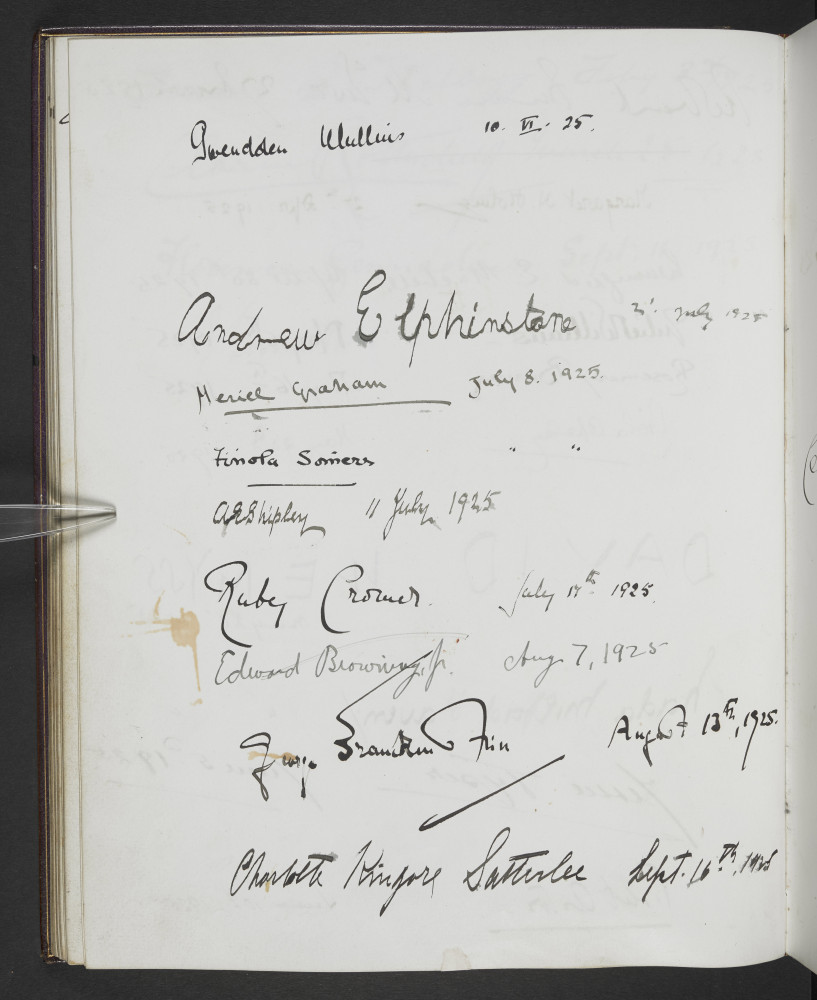 Gwendolen Mullins 10. VI. 25.
Andrew Elphinstone 2nd. July 1925
Meriel Graham July 8. 1925.
Finola Somers " "
A E Shipley 11 July, 1925
Ruby Cromer. July 17th 1925.
Edward Browning, Jr. Aug 7, 1925
George Frin August 13th, 1925.
Charlotte Kingore Satterlee Sept. 16th, 1925